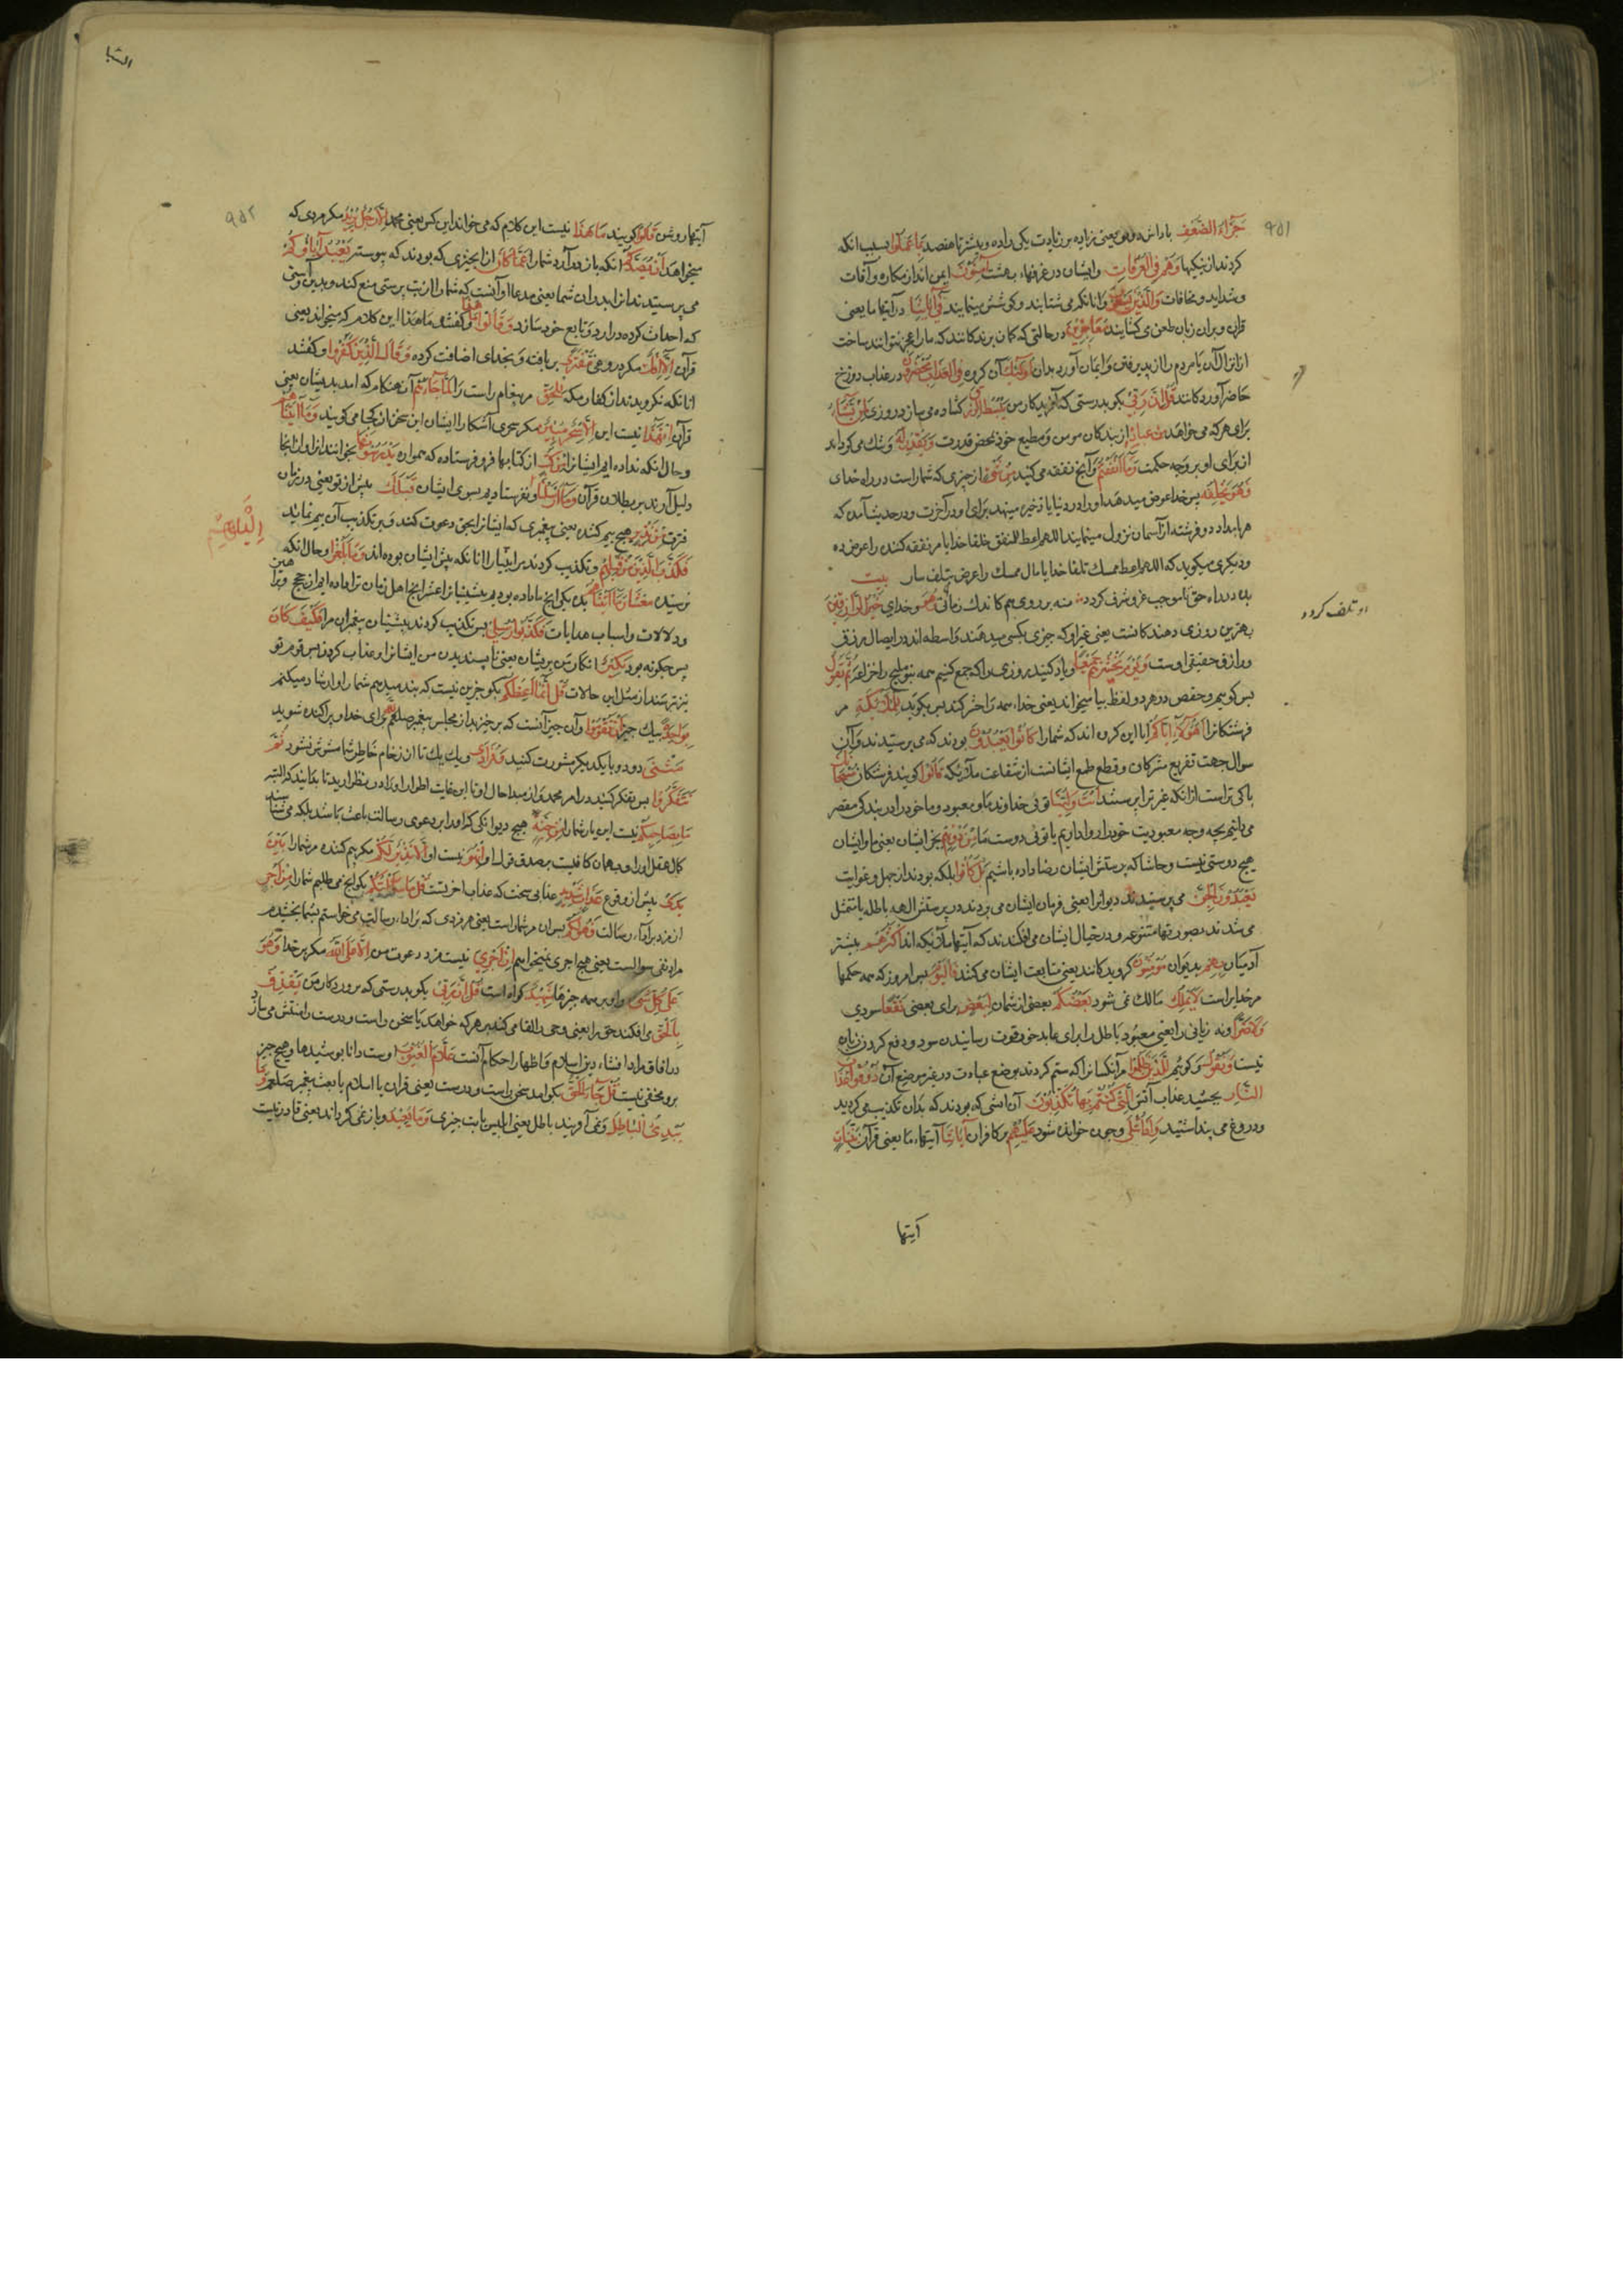 ٩٥١
جَزَآءُ الضِّعْفِ پاداش دوتو یعنی زیاده بر زیادت یکی را ده و بیشتر تا هفصد بِمَا عَمِلُوا بسبب انکه
کردند از نیکیها وَهُمْ فِی الْغُرُفَاتِ وایشان در غرفهاء بهشت آمِنُونَ ایمن اند از مکاره و آفات
وشداید و مخافات وَالَّذِینَ یَسْعَوْنَ وانانکه می شتابند و کوشش مینمایند فِی آیَاتِنَا در آیتهاء ما یعنی
قران و بران زبان طعن می کشایند مُعَاجِزِینَ در حالتی که کمان برند کانند که ما را عاجز توانند ساخت
از انزال آن یا مردم را از پذیرفتن و ایمان آوردن بدان اُولٰئِکَ آن کروه فِی الْعَذَابِ مُحْضَرُونَ در عذاب دوزخ
حاضر آورد کانند قُلْ اِنَّ رَبِّی بکو بدرستی که آفرید کار من یَبْسُطُ الرِّزْقَ کشاده می سازد روزی لِمَنْ یَشَآءُ
برای هر که می خواهد مِنْ عِبَادِهِ از بندکان مومن و مطیع خود بمحض قدرت وَیَقْدِرُ لَهُ وتنک می کرداند
از برای او بر وجه حکمت وَمَا اَنْفَقْتُمْ وآنچ نفقه می کنید مِنْ شَیْءٍ از چیزی که شما راست در راه خدای
فَهُوَ یُخْلِفُهُ پس خدا عوض میدهد او را در دنیا یا ذخیره مینهد برای او در آخرت و در حدیث آمده که
هر بامداد دو فرشته از آسمان نزول مینمایند اللهم اعط المنفق خلفا خدایا مر نفقه کننده را عوض ده
ودیکری میکوید که اللهم اعط ممسک تلفا خدایا مال ممسک را عرض تلف ساز بیت
وَهُوَ وخدای خَیْرُ الرَّازِقِینَ
بهترین روزی دهندکانست یعنی غیر او که چیزی بکسی میدهند واسطه اند در ایصال رزق
ورازق حقیقی اوست وَیَوْمَ یَحْشُرُهُمْ جَمِیعًا ویاد کنید روزی را که جمع کنیم همه ثُمَّ یَقُولُ
پس کوییم و حفص در هر دو لفظ بیا میخواند یعنی خداء همه را حشر کند پس بکوید لِلْمَلٰئِکَةِ مر
فرشتکانرا اَهٰؤُلَآءِ اِیَّاکُمْ ایا این کروه اند که شما را کَانُوا یَعْبُدُونَ بودند که می پرستیدند و آن
سوال جهت تقریع مشرکان و قطع طمع ایشانست از شفاعت ملائیکه قَالُوا کویند فرشتکان سُبْحَانَکَ
پاکی تراست ازانکه غیر ترا پرستند اَنْتَ وَلِیُّنَا توئی خداوند ما و معبود و ما خود را در بندکی مقصر
می دانیم بچه وجه معبودیت خود را روا داریم یا توئی دوست ما مِنْ دُونِهِمْ بجز ایشان یعنی ما و ایشان
هیچ دوستی نیست و حاشا که بپرستش ایشان رضا داده باشیم بَلْ کَانُوا بلکه بودند از جهل و غوایت
یَعْبُدُونَ الْجِنَّ می پرستیدند دیوانرا یعنی فرمان ایشان می بردند در پرستش الهه باطله یا متمثل
می شدند بصورتهاء متنوعه و در خیال ایشان می افکندند که آیتها ملائیکه اند اَکْثَرُهُمْ بیشتر
آدمیان بِهِمْ بدیوان مُؤْمِنُونَ کرویدکانند یعنی متابعت ایشان می کنند فَالْیَوْمَ پس امروز که همه حکمها
مر خدایراست لَا یَمْلِکُ مالک نمی شود بَعْضُکُمْ بعضی از شمایان لِبَعْضٍ برای بعضی نَفْعًا سودی
وَلَا ضَرًّا ونه زیانی را یعنی معبود باطل را برای عابد خود قوت رسانیدن سود و دفع کردن زیان
نیست وَنَقُولُ وکوئیم لِلَّذِینَ ظَلَمُوا مر آنکسانرا که ستم کردند بوضع عبادت در غیر موضع آن ذُوقُوا عَذَابَ
النَّارِ بچشید عذاب آتش الَّتِی کُنْتُمْ بِهَا تُکَذِّبُونَ آن آتشی که بودند که بدان تکذیب می کردید
ودروغ می پنداشتید وَاِذَا تُتْلٰی وچون خوانده شود عَلَیْهِمْ بر کافران آیَاتُنَا آیتهاء ما یعنی قرآن بَیِّنَاتٍ
آیتها
او تلف کردد
٩٥٢
آیتهاء روشن قَالُوا کویند مَا هٰذَا نیست این کلام که می خواند این کس یعنی محمد اِلَّا رَجُلٌ یُرِیدُ مکر مردی که
میخواهد اَنْ یَصُدَّکُمْ انکه باز دارد شما را عَمَّا کَانَ از ان چیزی که بودند که پیوسته یَعْبُدُ آبَاؤُکُمْ
می پرستیدند انرا پدران شما یعنی مدعا او آنست که شما را از بت پرستی منع کند وبدین آیینی
که احداث کرده درآرد و تابع خود سازد وَقَالُوا مَا هٰذَا وکفتند ما هذا این کلام که میخواند یعنی
قرآن اِلَّا اِفْکٌ مکر دروغی مُفْتَرًی بر بافته و بخدای اضافت کرده وَقَالَ الَّذِینَ کَفَرُوا وکفتند
انانکه نکرویدند از کفار مکه لِلْحَقِّ مر پیغام راست را لَمَّا جَآءَهُمْ آن هنکام که آمد بدیشان یعنی
قرآن اِنْ هٰذَا نیست این اِلَّا سِحْرٌ مُبِینٌ مکر سحری آشکارا ایشان این سخن از کجا می کویند وَمَا آتَیْنَاهُمْ
وحال انکه نداده ایم ایشانرا مِنْ کُتُبٍ از کتابها فرو فرستاده که همواره یَدْرُسُونَهَا بخوانند انرا و ازانجا
دلیل آورند بر بطلان قرآن وَمَا اَرْسَلْنَا ونفرستادیم بسوی ایشان قَبْلَکَ پیش از تو یعنی در زمان
اِلَیْهِمْ
فترت مِنْ نَذِیرٍ هیچ بیم کننده یعنی پیغمبری که ایشانرا بحق دعوت کند و بر تکذیب آن بیم نماید
وَکَذَّبَ الَّذِینَ مِنْ قَبْلِهِمْ وتکذیب کردند مر انبیا را انانکه پیش ایشان بوده اند وَمَا بَلَغُوا وحال انکه
نرسیدند مِعْشَارَ مَا آتَیْنَاهُمْ بده یکی انچ ما داده بودیم پیشینیانرا
ودلالات واسباب هدایات فَکَذَّبُوا رُسُلِی پس تکذیب کردند پیشینیان پیغمبران مرا فَکَیْفَ کَانَ
پس چکونه بود نَکِیرِ انکار من بر یشان یعنی ناپسندیدن من ایشانرا و عذاب کردن پس قوم تو
نیز ترسند از مثل این حالات قُلْ اِنَّمَا اَعِظُکُمْ بکو جز این نیست که پند میدهم شما را و ارشاد میکنم
بِوَاحِدَةٍ بیک چیز اَنْ تَقُومُوا وآن چیز آنست که بر خیزید از مجلس پیغمبر صلعم برای خدا و پراکنده شوید
مَثْنٰی دو دو با یکدیکر مشورت کنید وَفُرَادٰی ویک یک تا از ازدحام خاطر شما مشوش نشود ثُمَّ
تَتَفَکَّرُوا پس تفکر کنید در امر محمد و از مبدا حال او تا این غایت اطوار او را در نظر آرید تا بدانید که البته
مَا بِصَاحِبِکُمْ نیست این یار شما را مِنْ جِنَّةٍ هیچ دیوانکی که او را بر دعوی رسالت باعث باشد بلکه
کمال عقل او را و برهان کافیست بر صدق قول او اِنْ هُوَ نیست او اِلَّا نَذِیرٌ لَکُمْ مکر بیم کننده مر شما را بَیْنَ
یَدَیْ پیش از وقوع عَذَابٍ شَدِیدٍ عذابی سخت که عذاب آخرتست قُلْ مَا سَاَلْتُکُمْ بکو انچ می طلبم شما را مِنْ اَجْرٍ
از مزد بر اداء رسالت فَهُوَ لَکُمْ پس ان مر شما راست یعنی هر مزدی که بر اداء رسالت می خواستم بشما بخشیدم
مراد نفی سوالست یعنی هیچ اجری نمیخواهم اِنْ اَجْرِیَ نیست مزد دعوت من اِلَّا عَلَی اللّٰهِ مکر بر خدا وَهُوَ
عَلٰی کُلِّ شَیْءٍ واو بر همه چیزها شَهِیدٌ کواه است قُلْ اِنَّ رَبِّی بکو بدرستی که پروردکار من یَقْذِفُ
بِالْحَقِّ می افکند حق را یعنی وحی را القا می کند بر هر که خواهد یا سخن راست و درست را منتقش می سازد
در آفاق مراد افشاء دین اسلام و اظهار احکام آنست عَلَّامُ الْغُیُوبِ اوست دانا بپوشیدها وهیچ چیز
برو مخفی نیست قُلْ جَآءَ الْحَقُّ بکو آمد سخن راست و درست یعنی قران یا اسلام یا بعث پیغمبر صلعم وَمَا
یُبْدِئُ الْبَاطِلُ ونمی آفریند باطل یعنی ابلیس یا بت چیزی وَمَا یُعِیدُ وباز نمی کرداند یعنی قادر نیست